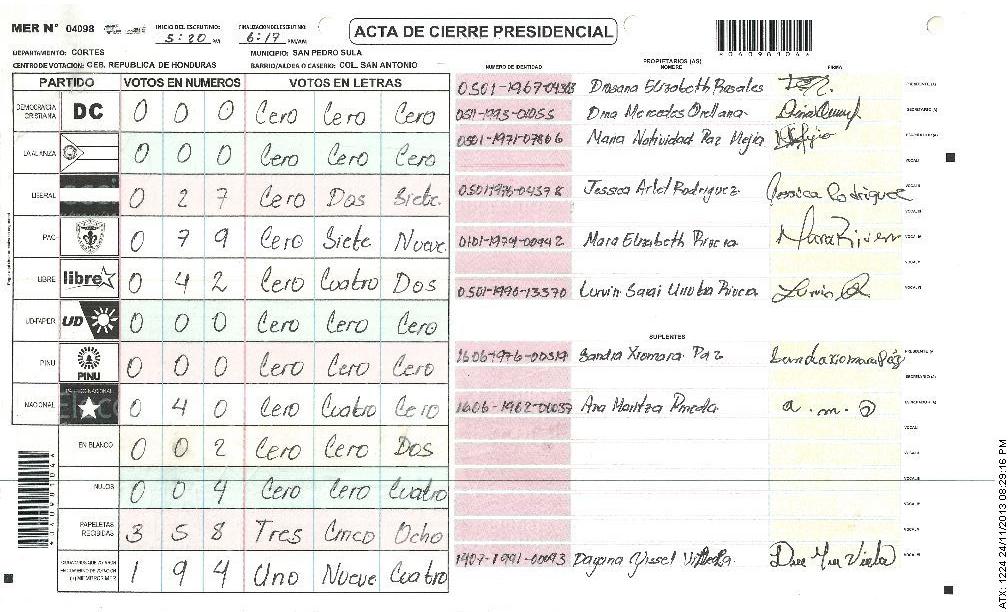 MER N° 04098
INICIO DEL ESCRUTINIO: 5:20 PM
FINALIZACION DEL ESCRUTINIO: 6:17 PM/AM
ACTA DE CIERRE PRESIDENCIAL
DEPARTAMENTO: CORTES
MUNICIPIO: SAN PEDRO SULA
CENTRO DE VOTACION: CEB. REPUBLICA DE HONDURAS
BARRIO/ALDEA O CASERIO: COL. SAN ANTONIO
PARTIDO VOTOS EN NUMEROS VOTOS EN LETRAS
DEMOCRACIA CRISTIANA DC 0 0 0 Cero Cero Cero
LA ALIANZA 0 0 0 Cero Cero Cero
LIBERAL 0 2 7 Cero Dos Siete
PAC 0 7 9 Cero Siete Nueve
LIBRE libre 0 4 2 Cero Cuatro Dos
UD-FAPER UD 0 0 0 Cero Cero Cero
PINU PINU 0 0 0 Cero Cero Cero
NACIONAL 0 4 0 Cero Cuatro Cero
EN BLANCO 0 0 2 Cero Cero Dos
NULOS 0 0 4 Cero Cero Cuatro
PAPELETAS RECIBIDAS 3 5 8 Tres Cinco Ocho
1 9 4 Uno Nueve Cuatro
NUMERO DE IDENTIDAD
PROPIETARIOS (AS)
NOMBRE
FIRMA
Elizabeth Rosales
Dina Mercedes Orellana
0501-1971-07806 Maria Natividad Paz Mejia
Jessica Rodriguez Jessica Rodriguez
0101-1979-00942 Mara Elizabeth Rivera Mara Rivera
0501-1990-13370 Sarai Rivera
SUPLENTES
1606-1976-00319 Sandra Xiomara Paz
Ana Maritza Pineda a.m.p
1407-1991-00093 Dayana Yissel
ATX: 1224-24/11/2013 08:29:16 PM